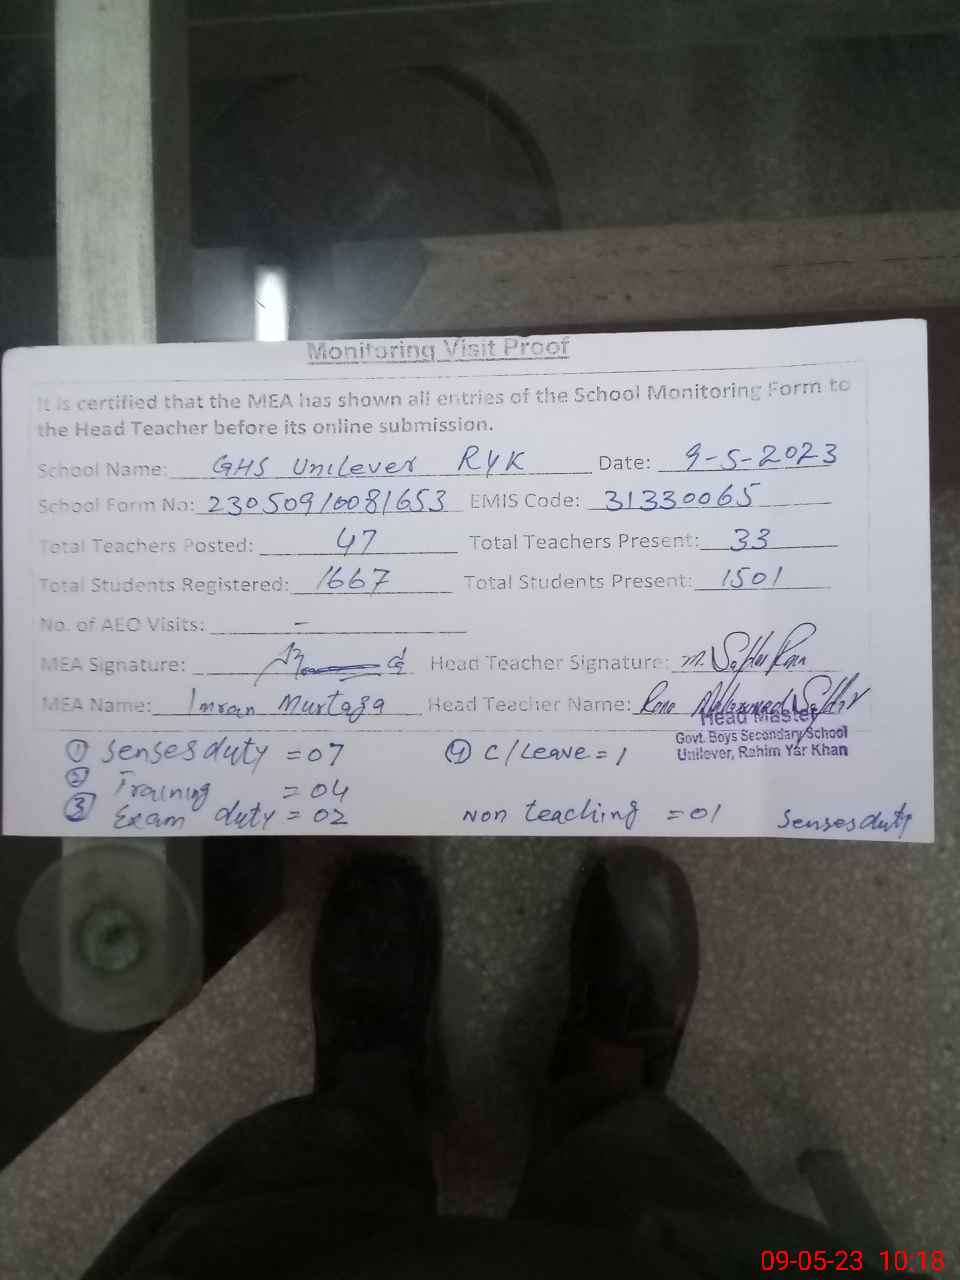 Monitoring Visit Proof
It is certified that the MEA has shown all entries of the School Monitoring Form to
the Head Teacher before its online submission.
School Name: GHS Unilever RYK Date: 9-5-2023
School Form No: 230509/0081653 EMIS Code: 31330065
Total Teachers Posted: 47 Total Teachers Present: 33
Total Students Registered: 1667 Total Students Present: 1501
No. of AEO Visits: -
MEA Signature: Head Teacher Signature: M. Safdar Rana
MEA Name: Imran Murtaza Head Teacher Name: Rana Muhammad Safdar
Head Master
Govt. Boys Secondary School
Unilever, Rahim Yar Khan
① Senses duty = 07 ④ C/Leave = 1
② Training = 04
③ Exam duty = 02 Non teaching = 01 Senses duty
09-05-23 10:18